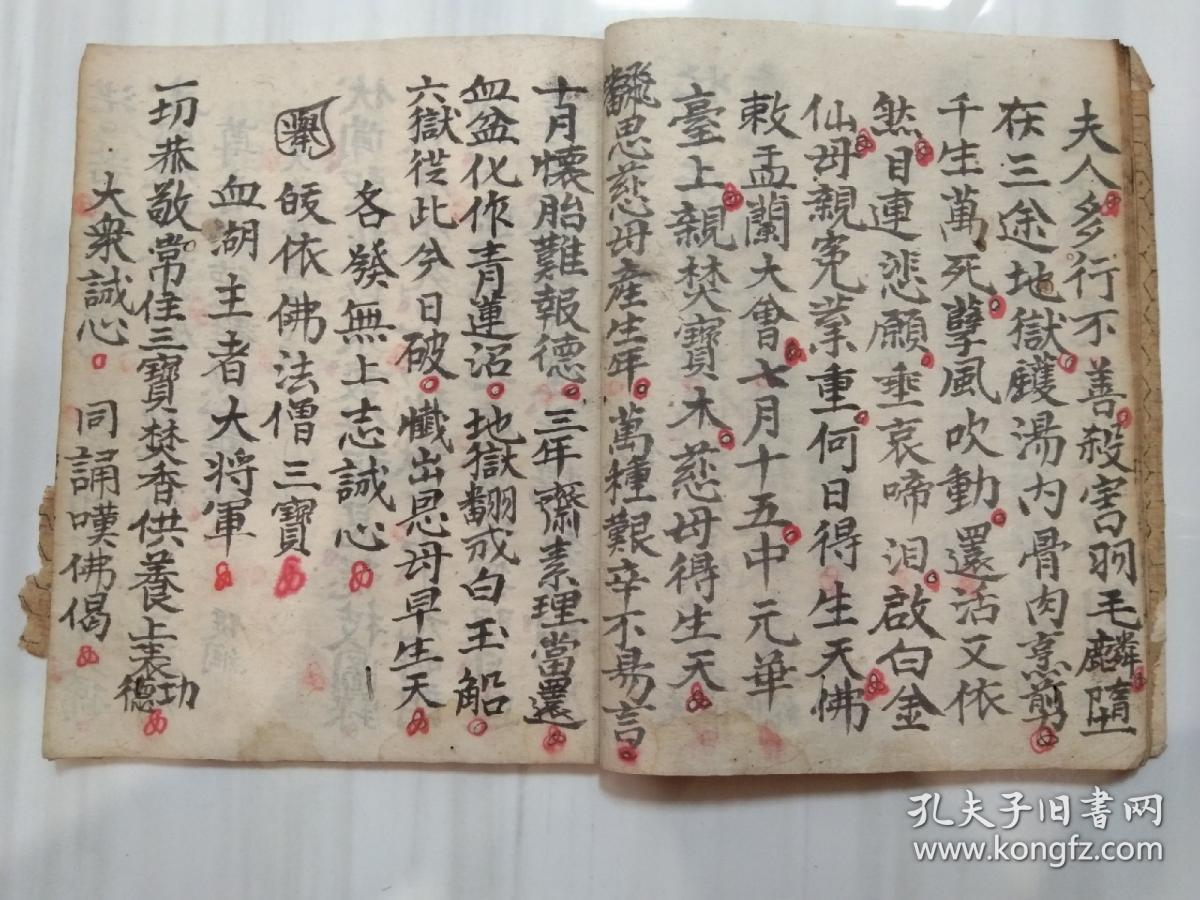 夫人多行不善殺害羽毛麟墮
在三途地獄鑊湯內骨肉烹煎
千生萬死孽風吹動還活又依
然目連悲願垂哀啼泪啟白金
仙母親冤業重何日得生天佛
敕盂蘭大會七月十五中元華
臺上親焚寶木慈母得生天
飜思慈母產生年萬種艱辛不易言
十月懷胎難報德三年齋素理當還
血盆化作青蓮沼地獄翻成白玉船
六獄從此今日破懺出恩母早生天
各發無上志誠心
皈依佛法僧三寶
血湖主者大將軍
一切恭敬常住三寶焚香供養上來功德
大衆誠心 同誦嘆佛偈
孔夫子旧书网
www.kongfz.com